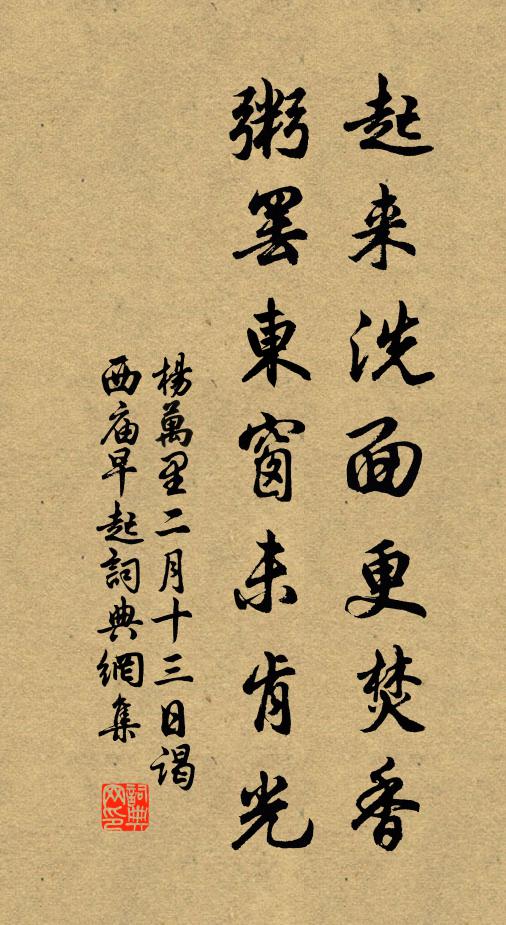 起来洗面更焚香
粥罢東窗未肯光
楊萬里二月十三日謁
西庙早起詞典網集
詞典
网印